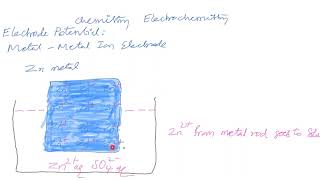 chemistry Electrochemistry
Electrode Potential:
Metal - Metal Ion Electrode
Zn metal
Zn²⁺ from metal rod goes to Solu
Zn²⁺aq SO₄²⁻aq